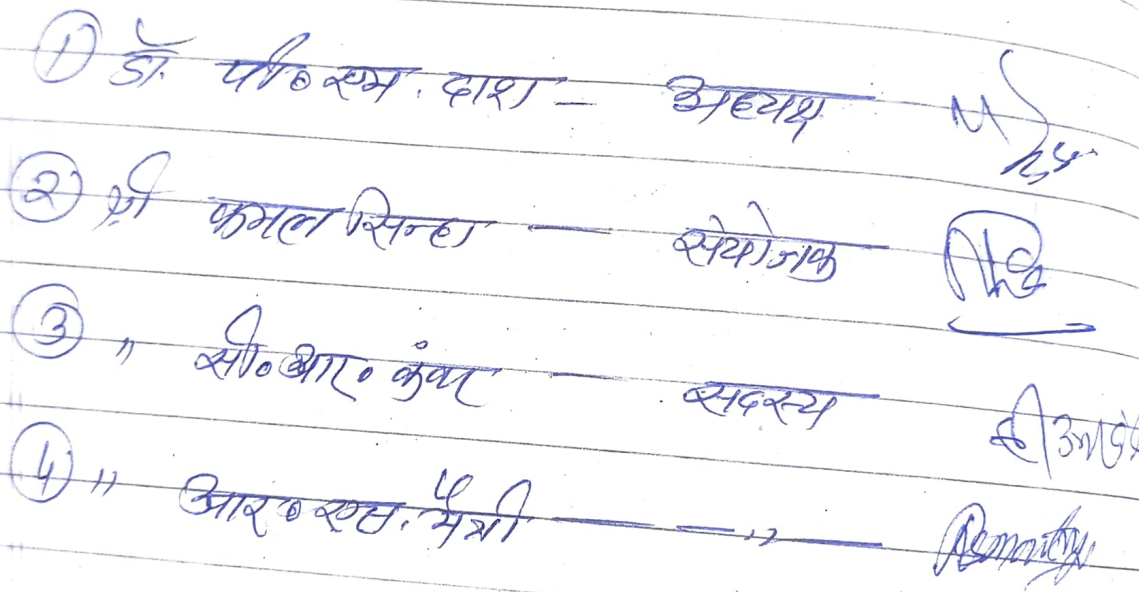 ① डॉ. पी॰ एम. दाश — अध्यक्ष
② श्री कमल सिन्हा — संयोजक
③ " सी॰ आर॰ कुंवर — सदस्य
④ " आर॰ एस. मैत्री — — " —